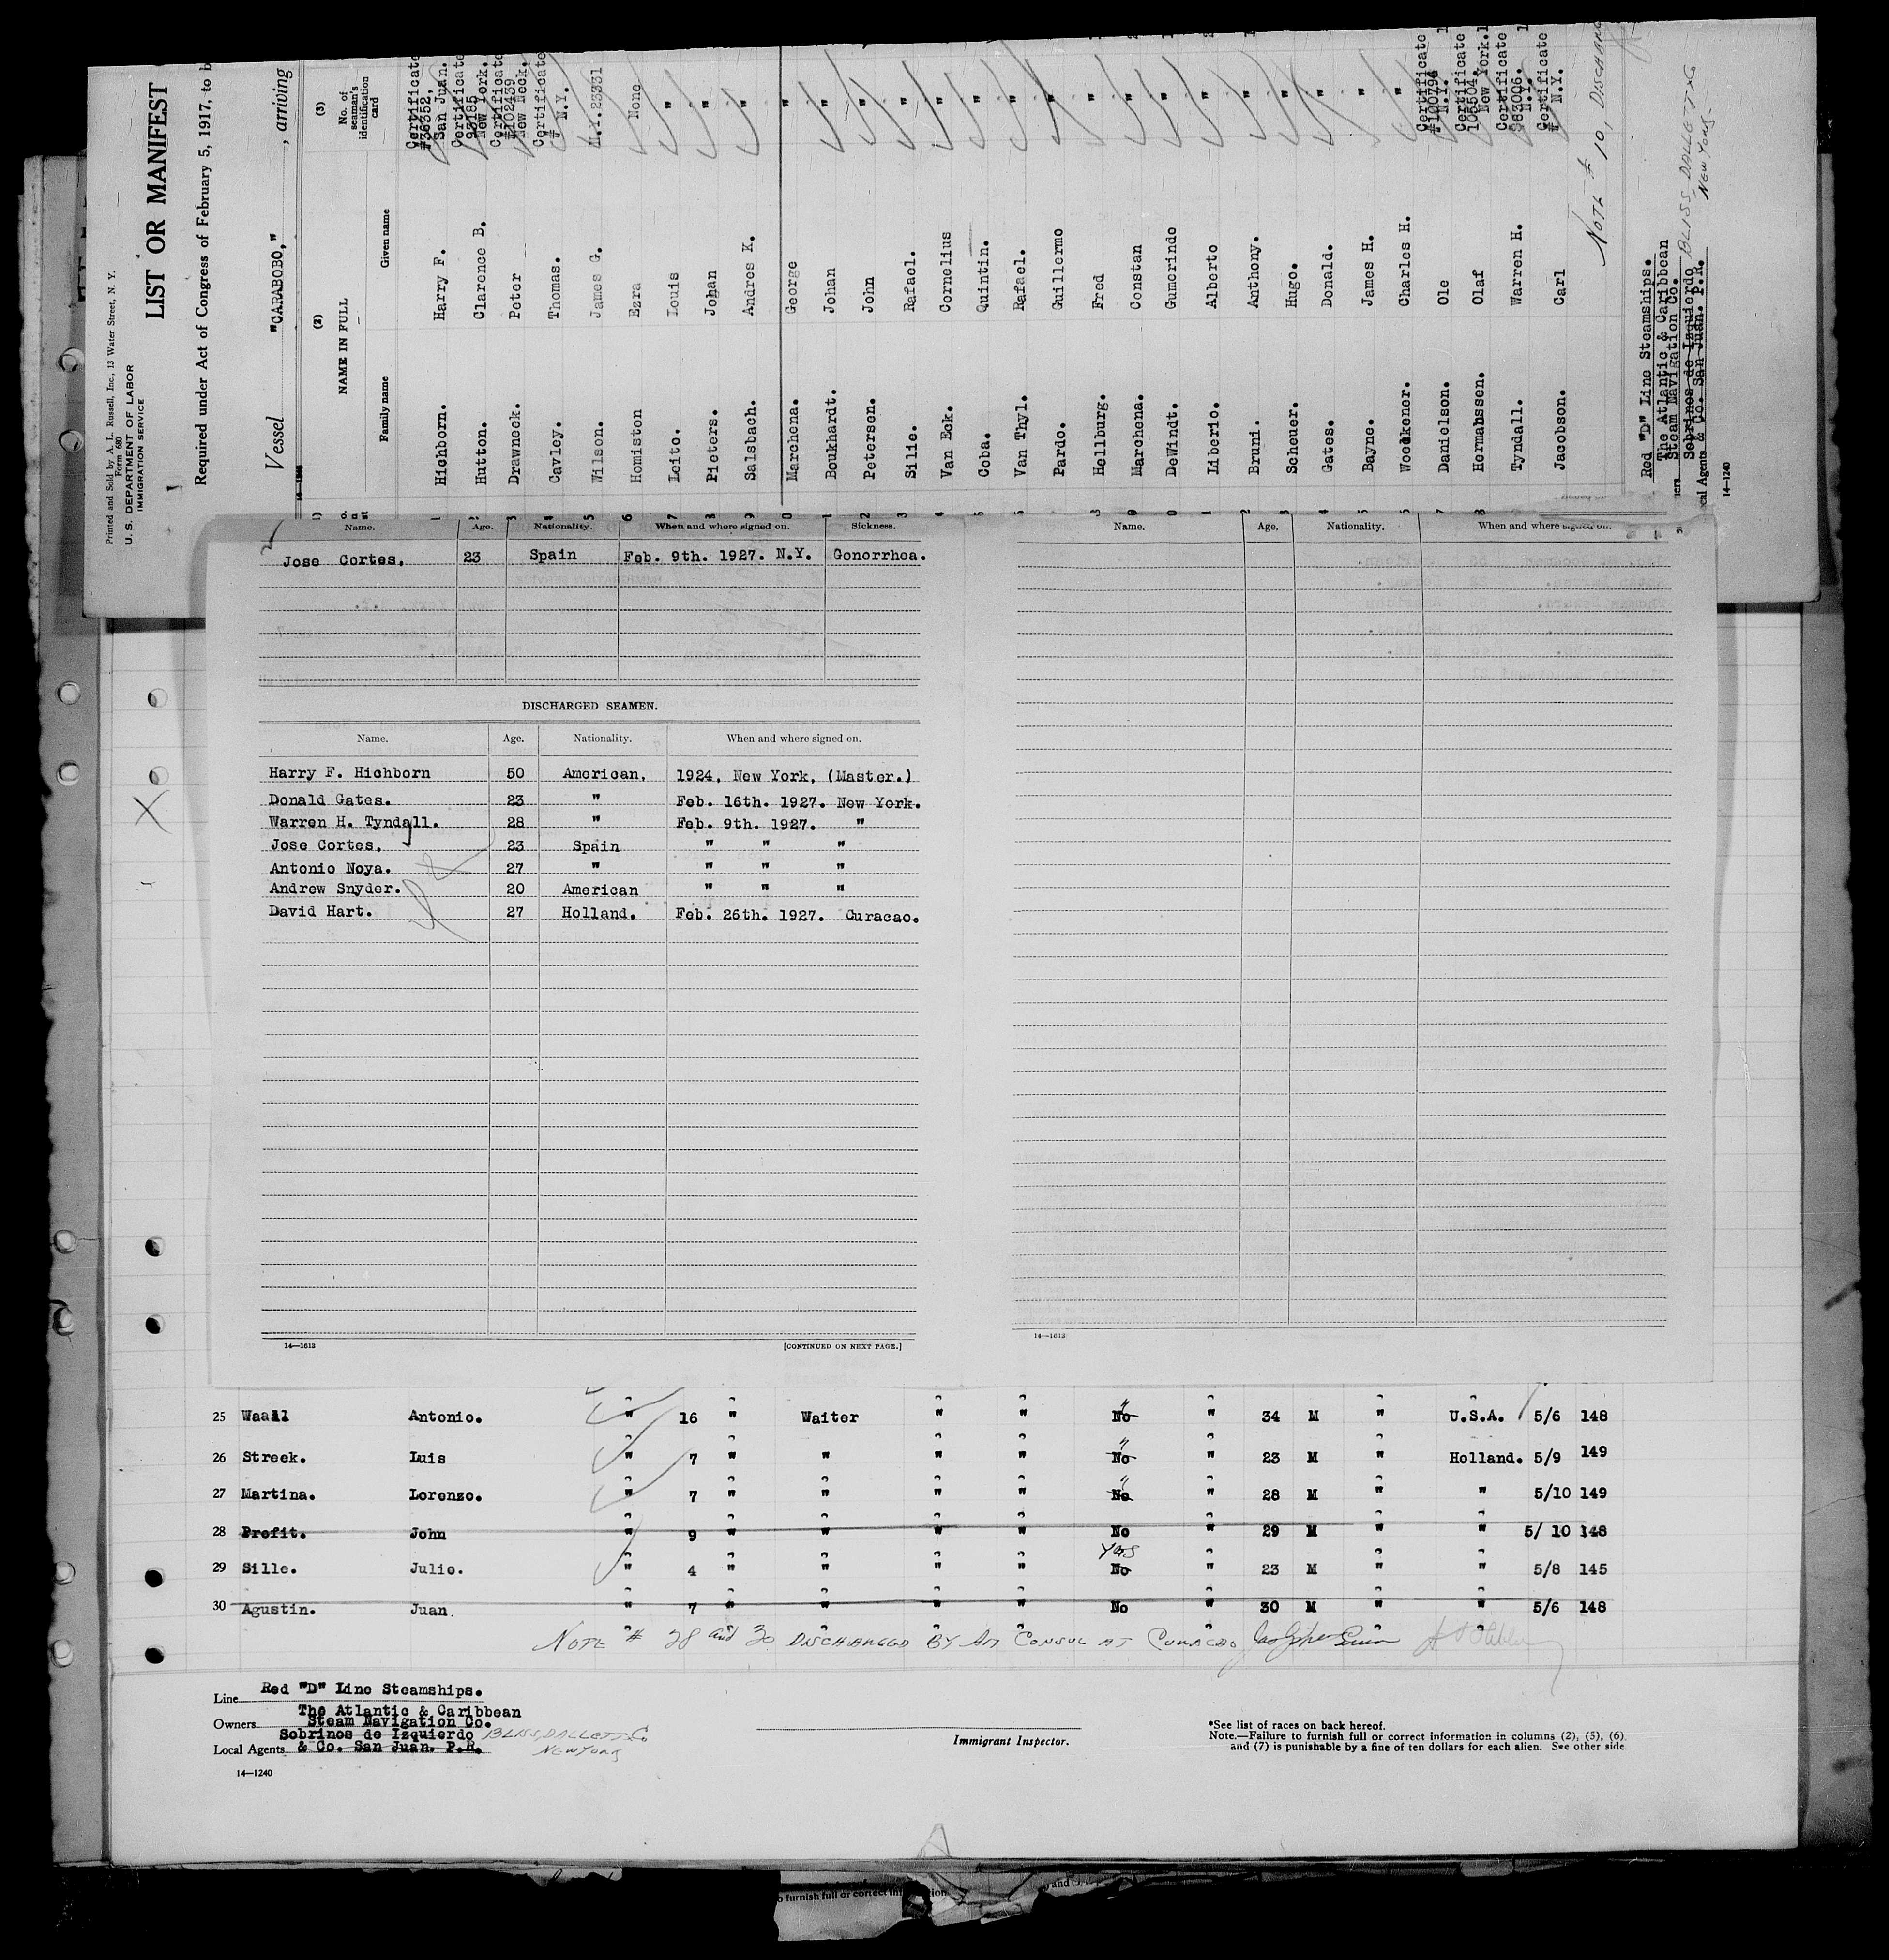 Printed and Sold by A. L. Russell, Inc., 13 Water Street, N. Y.
Form 680
U. S. DEPARTMENT OF LABOR
IMMIGRATION SERVICE
LIST OR MANIFEST
Required under Act of Congress of February 5, 1917, to b
Vessel "CARABOBO," , arriving
(2) (3)
NAME IN FULL No. of seaman's identification card
Family name Given name
1 Hichborn. Harry F. Certificate #36352, San Juan.
2 Hutton. Clarence B. Certificate 93185 New York.
3 Drawneck. Peter Certificate #102439 New Neck.
4 Cavley. Thomas. Certificate # N.Y.
5 Wilson. James G. N.Y.23331
6 Homiston Ezra None
7 Leito. Louis "
8 Pieters. Johan "
9 Salsbach. Andres K. "
0 Marchena. George "
1 Boukhardt. Johan "
2 Petersen. John "
3 Silie. Rafael. "
Van Eck. Cornelius "
Coba. Quintin. "
Van Thyl. Rafael. "
Pardo. Guillermo "
Hellburg. Fred "
Marchena. Constan "
DeWindt. Gumorindo "
Liberio. Alberto "
Bruni. Anthony. "
Scheuer. Hugo. "
Gates. Donald. "
Bayne. James H. "
Woekener. Charles H. "
Danielson. Ole Certificate #100794 N.Y.
Hermabssen. Olaf Certificate 105504. New York.
Tyndall. Warren H. Certificate 963006. N.Y.
Jacobson. Carl Certificate # N.Y.
NOTE # 10, DISCHANG
Red "D" Line Steamships.
The Atlantic & Caribbean
Steam Navigation Co.
Sobrinos de Izquierdo BLISS, DALLETT & C
cal Agents & Co. San Juan. P.R. NEW YORK
14—1240
Name. Age. Nationality. When and where signed on. Sickness.
Jose Cortes. 23 Spain Feb. 9th. 1927. N.Y. Gonorrhea.
DISCHARGED SEAMEN.
Name. Age. Nationality. When and where signed on.
Harry F. Hichborn 50 American. 1924. New York. (Master.)
Donald Gates. 23 " Feb. 16th. 1927. New York.
Warren H. Tyndall. 28 " Feb. 9th. 1927. "
Jose Cortes. 23 Spain " " "
Antonio Noya. 27 " " " "
Andrew Snyder. 20 American " " "
David Hart. 27 Holland. Feb. 26th. 1927. Curacao.
14—1613 [CONTINUED ON NEXT PAGE.]
Name. Age. Nationality. When and where signed on.
14—1613
25 Waall Antonio. " 16 " Waiter " " No " 34 M " U.S.A. 5/6 148
26 Streek. Luis " 7 " " " " No " 23 M " Holland. 5/9 149
27 Martina. Lorenzo. " 7 " " " " No " 28 M " " 5/10 149
28 Profit. John " 9 " " " " No " 29 M " " 5/ 10 148
Yes
29 Sille. Julio. " 4 " " " " No " 23 M " " 5/8 145
30 Agustin. Juan. " 7 " " " " No " 30 M " " 5/6 148
NOTE # 28 and 30 DISCHANGED BY AM CONSUL AT CURACAO
Line Red "D" Line Steamships.
The Atlantic & Caribbean
Owners Steam Navigation Co.
Sobrinos de Izquierdo BLISS, DALLETT & Co
Local Agents & Co. San Juan. P.R. NEW YORK
14—1240
Immigrant Inspector.
*See list of races on back hereof.
Note.—Failure to furnish full or correct information in columns (2), (5), (6)
and (7) is punishable by a fine of ten dollars for each alien. See other side
o furnish full or correct in